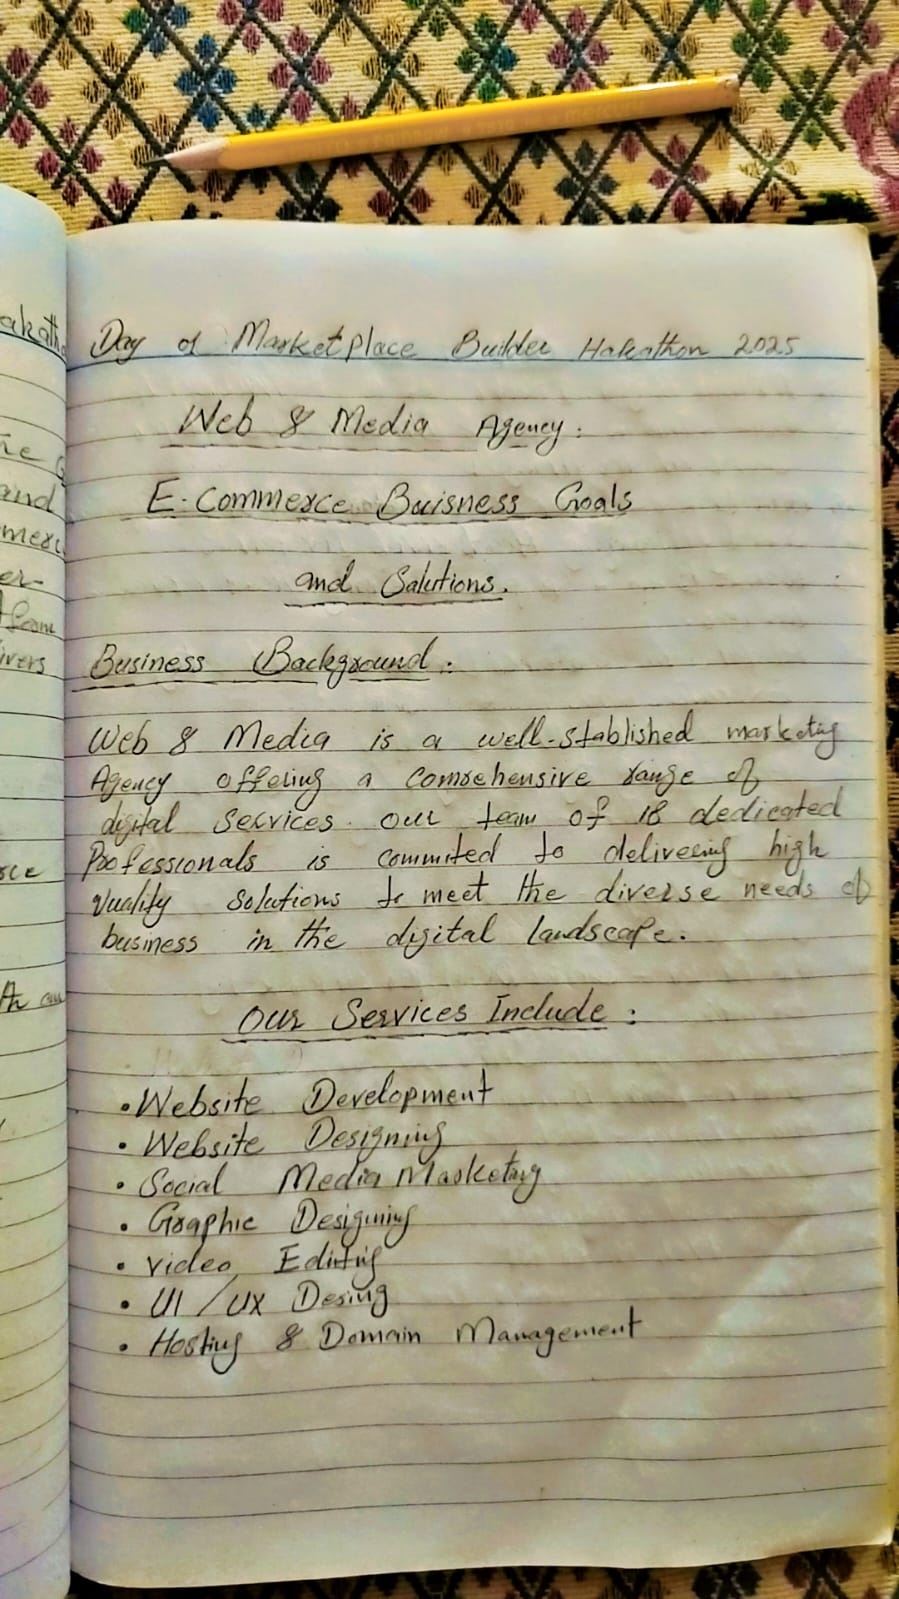 Day of Marketplace Builder Hakathon 2025
Web & Media Agency:
E-Commerce Buisness Goals
and Solutions.
Business Background:
Web & Media is a well-stablished marketing
Agency offering a comrehensive range of
digital Services. our team of 18 dedicated
Professionals is commited to delivering high
quality solutions to meet the diverse needs of
business in the digital landscape.
Our Services Include:
• Website Development
• Website Designing
• Social Media Marketing
• Graphic Designing
• Video Editing
• UI/UX Desing
• Hosting & Domain Management
and